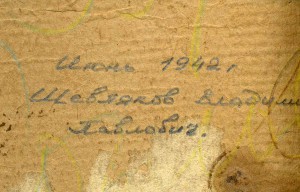 Июнь 1942 г
Щевляков Владими
Павлович.